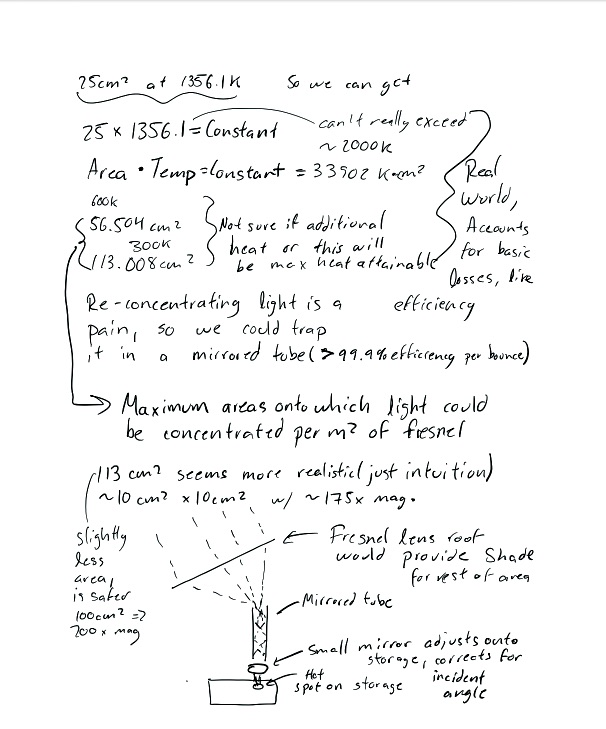 25cm² at 1356.1K So we can get
25 x 1356.1 = Constant
can't really exceed
~2000K
Area • Temp = Constant = 33902 K•cm²
Real
World,
Accounts
for basic
losses, like
efficiency
600K
56.504 cm²
300K
113.008cm²
Not sure if additional
heat or this will
be max heat attainable
Re-concentrating light is a
pain, so we could trap
it in a mirrored tube (>99.9% efficiency per bounce)
Maximum areas onto which light could
be concentrated per m² of fresnel
113 cm² seems more realistic (just intuition)
~10 cm² x 10cm² w/ ~175x mag.
slightly
less
area,
is safer
100cm² =>
200x mag
Fresnel lens roof
would provide Shade
for rest of area
Mirrored tube
Small mirror adjusts onto
storage, corrects for
incident
angle
Hot
spot on storage